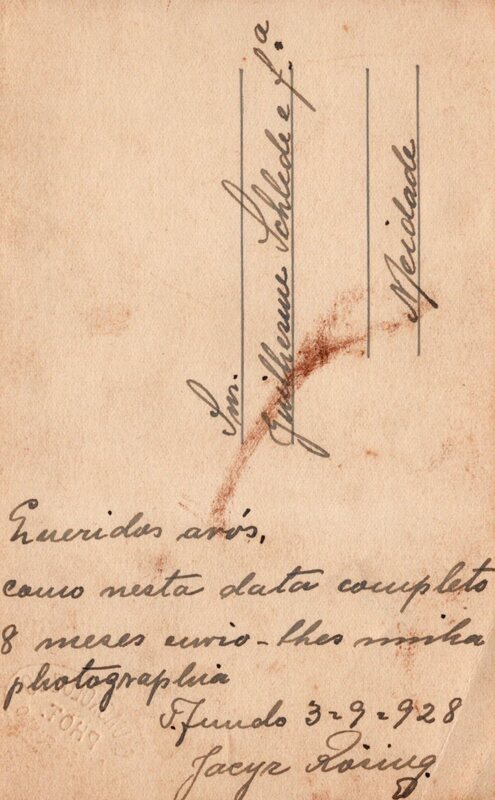 Snr.
Guilherme Schlede e f.ª
N/cidade
Queridos avós,
como nesta data completo
8 mezes envio-lhes minha
photographia
P. fundo 3-9-928
Jacyr Rösing
PHOT.